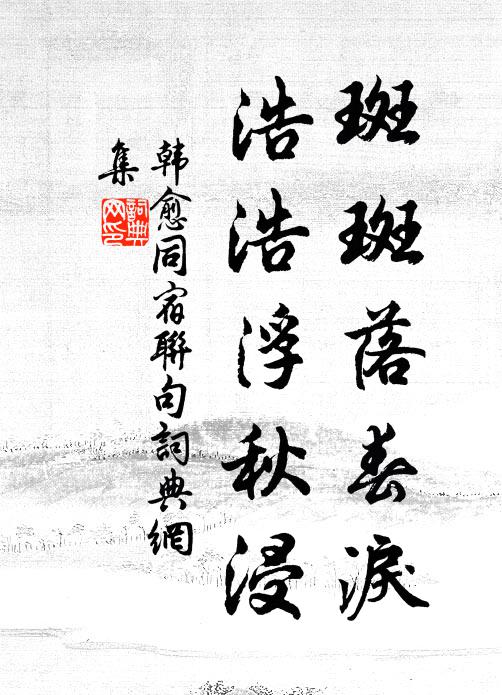 斑斑落春淚
浩浩浮秋浸
韩愈同宿聯句詞典網
集
詞典
网印